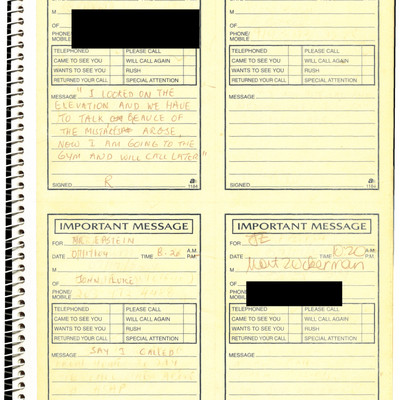 M
OF
PHONE/
MOBILE
TELEPHONED PLEASE CALL
CAME TO SEE YOU WILL CALL AGAIN
WANTS TO SEE YOU RUSH
RETURNED YOUR CALL SPECIAL ATTENTION
MESSAGE
" I LOOKED ON THE
ELEVATION AND WE HAVE
TO TALK
OF THE AROSE,
NOW I AM GOING TO THE
GYM AND WILL CALL LATER "
SIGNED R
1184
M
OF
PHONE/
MOBILE
TELEPHONED PLEASE CALL
CAME TO SEE YOU WILL CALL AGAIN
WANTS TO SEE YOU RUSH
RETURNED YOUR CALL SPECIAL ATTENTION
MESSAGE
SIGNED
1184
IMPORTANT MESSAGE
FOR MR EPSTEIN
DATE TIME 8-20 A.M.
P.M.
M
OF JOHN
PHONE/
MOBILE
TELEPHONED PLEASE CALL
CAME TO SEE YOU WILL CALL AGAIN
WANTS TO SEE YOU RUSH
RETURNED YOUR CALL SPECIAL ATTENTION
MESSAGE SAY I CALLED
IMPORTANT MESSAGE
FOR JE
DATE TIME 10:20 A.M.
P.M.
M Mort Zuckerman
OF
PHONE/
MOBILE
TELEPHONED PLEASE CALL
CAME TO SEE YOU WILL CALL AGAIN
WANTS TO SEE YOU RUSH
RETURNED YOUR CALL SPECIAL ATTENTION
MESSAGE